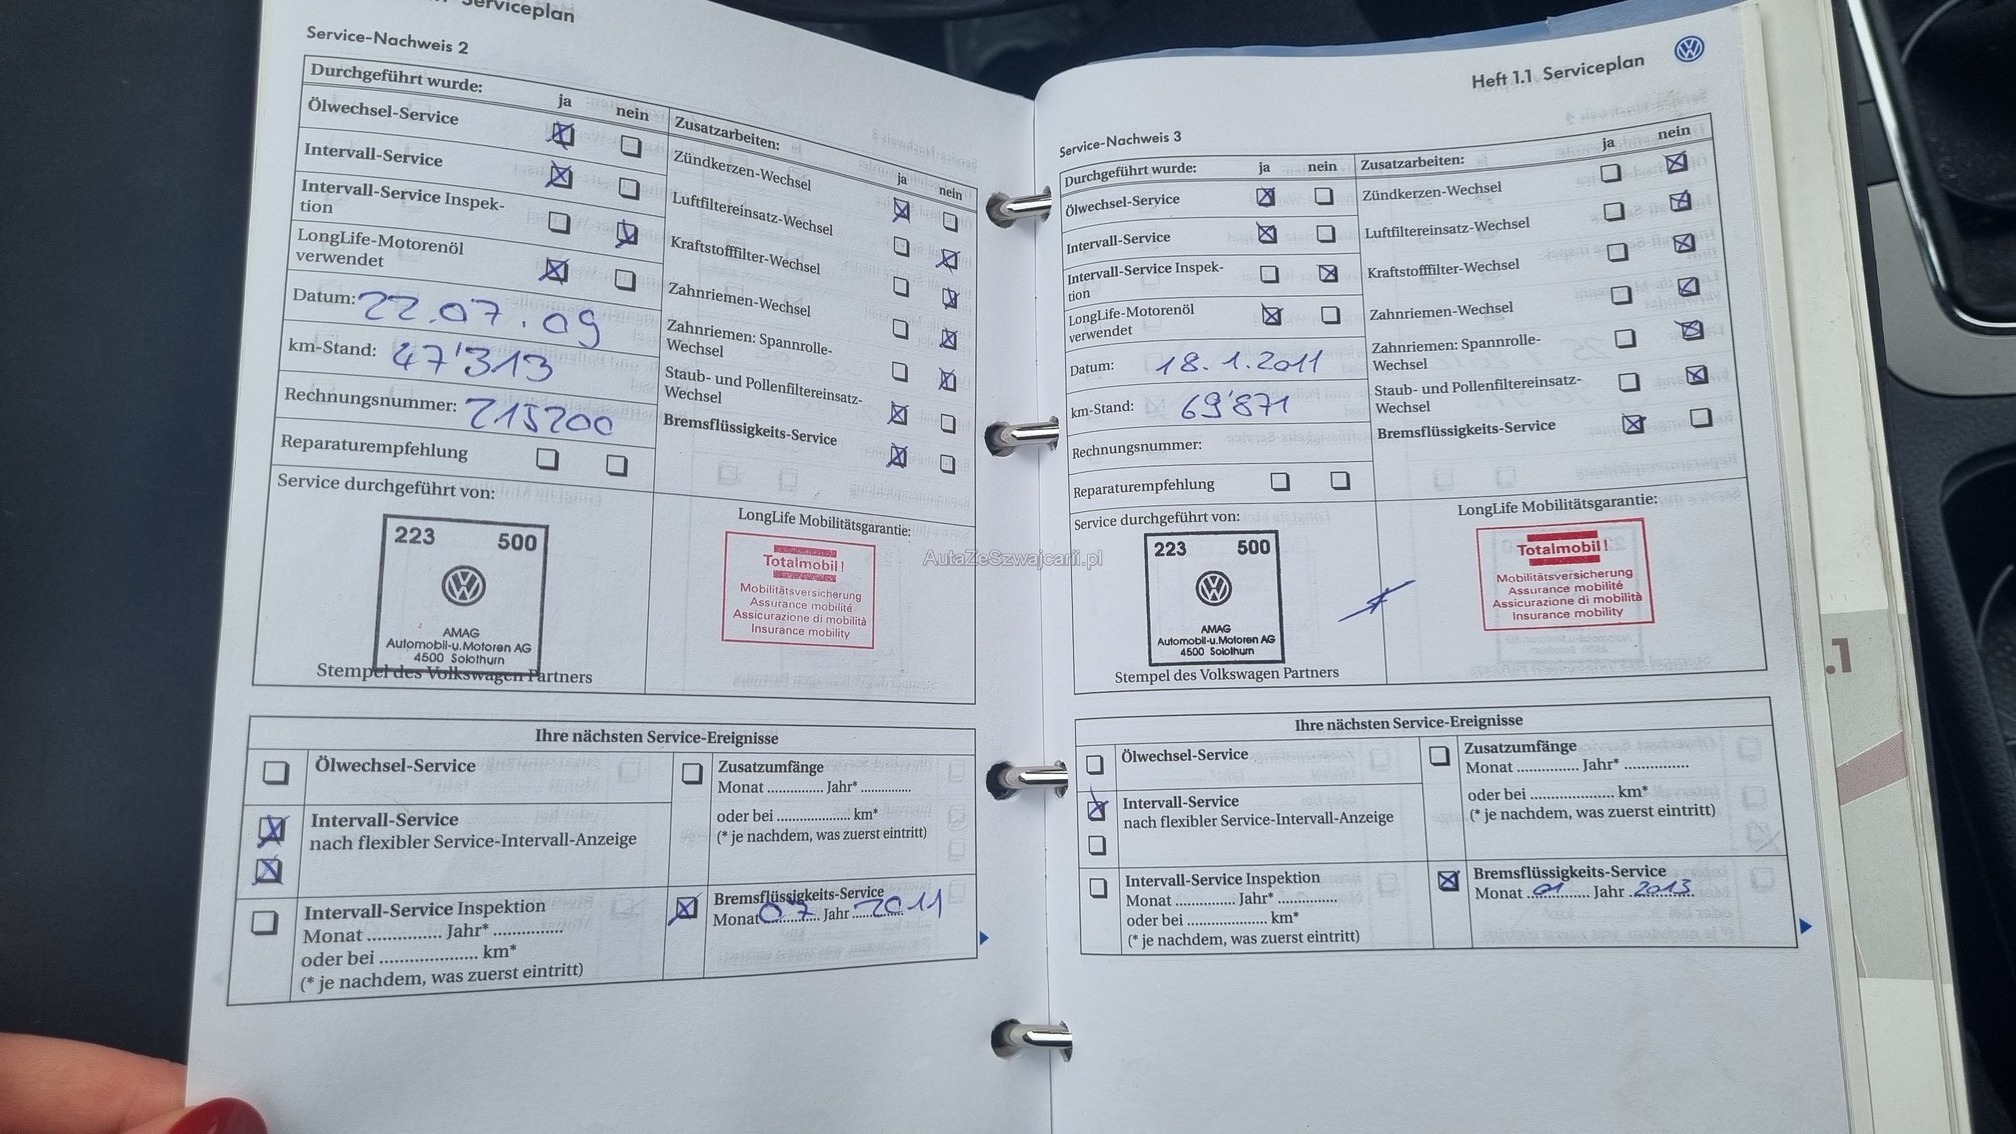 Serviceplan
Service-Nachweis 2
Durchgeführt wurde:
ja
nein
Ölwechsel-Service
Intervall-Service
Intervall-Service Inspek-
tion
LongLife-Motorenöl
verwendet
Datum: 22.07.09
km-Stand: 47'313
Rechnungsnummer: 215200
Reparaturempfehlung
Zusatzarbeiten:
ja
nein
Zündkerzen-Wechsel
Luftfiltereinsatz-Wechsel
Kraftstofffilter-Wechsel
Zahnriemen-Wechsel
Zahnriemen: Spannrolle-
Wechsel
Staub- und Pollenfiltereinsatz-
Wechsel
Bremsflüssigkeits-Service
Service durchgeführt von:
223 500
AMAG
Automobil-u.Motoren AG
4500 Solothurn
Stempel des Volkswagen Partners
LongLife Mobilitätsgarantie:
Totalmobil!
Mobilitätsversicherung
Assurance mobilité
Assicurazione di mobilità
Insurance mobility
Ihre nächsten Service-Ereignisse
Ölwechsel-Service
Intervall-Service
nach flexibler Service-Intervall-Anzeige
Intervall-Service Inspektion
Monat ................ Jahr* ...............
oder bei ..................... km*
(* je nachdem, was zuerst eintritt)
Zusatzumfänge
Monat ............... Jahr* .............
oder bei .................... km*
(* je nachdem, was zuerst eintritt)
Bremsflüssigkeits-Service
Monat 07 Jahr 2011
AutaZeSzwajcarii.pl
Heft 1.1 Serviceplan
Service-Nachweis 3
Durchgeführt wurde:
ja
nein
Ölwechsel-Service
Intervall-Service
Intervall-Service Inspek-
tion
LongLife-Motorenöl
verwendet
Datum: 18.1.2011
km-Stand: 69'871
Rechnungsnummer:
Reparaturempfehlung
Zusatzarbeiten:
ja
nein
Zündkerzen-Wechsel
Luftfiltereinsatz-Wechsel
Kraftstofffilter-Wechsel
Zahnriemen-Wechsel
Zahnriemen: Spannrolle-
Wechsel
Staub- und Pollenfiltereinsatz-
Wechsel
Bremsflüssigkeits-Service
Service durchgeführt von:
223 500
AMAG
Automobil-u.Motoren AG
4500 Solothurn
Stempel des Volkswagen Partners
LongLife Mobilitätsgarantie:
Totalmobil!
Mobilitätsversicherung
Assurance mobilité
Assicurazione di mobilità
Insurance mobility
Ihre nächsten Service-Ereignisse
Ölwechsel-Service
Intervall-Service
nach flexibler Service-Intervall-Anzeige
Intervall-Service Inspektion
Monat ............... Jahr* ...............
oder bei ..................... km*
(* je nachdem, was zuerst eintritt)
Zusatzumfänge
Monat ............... Jahr* ...............
oder bei ..................... km*
(* je nachdem, was zuerst eintritt)
Bremsflüssigkeits-Service
Monat 01 Jahr 2013
.1